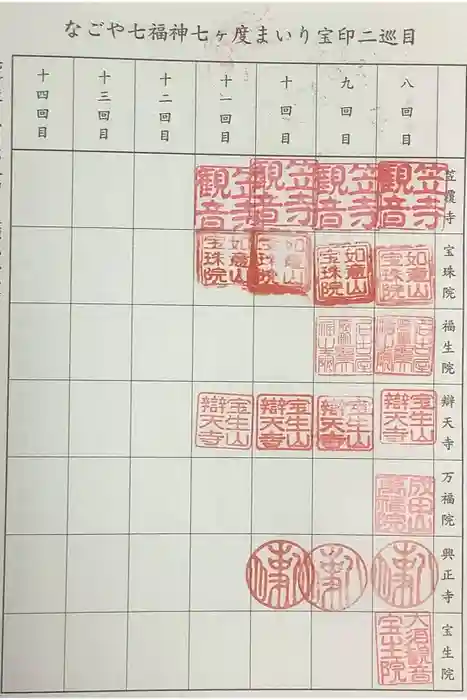 なごや七福神七ヶ度まいり宝印二巡目
八回目
九回目
十回目
十一回目
十二回目
十三回目
十四回目
笠覆寺
笠寺観音
笠寺観音
笠寺観音
笠寺観音
宝珠院
如意山宝珠院
如意山宝珠院
如意山宝珠院
如意山宝珠院
福生院
辯天寺
宝生山辯天寺
宝生山辯天寺
宝生山辯天寺
宝生山辯天寺
万福院
成田山萬福院
興正寺
宝生院
大須観音宝生院